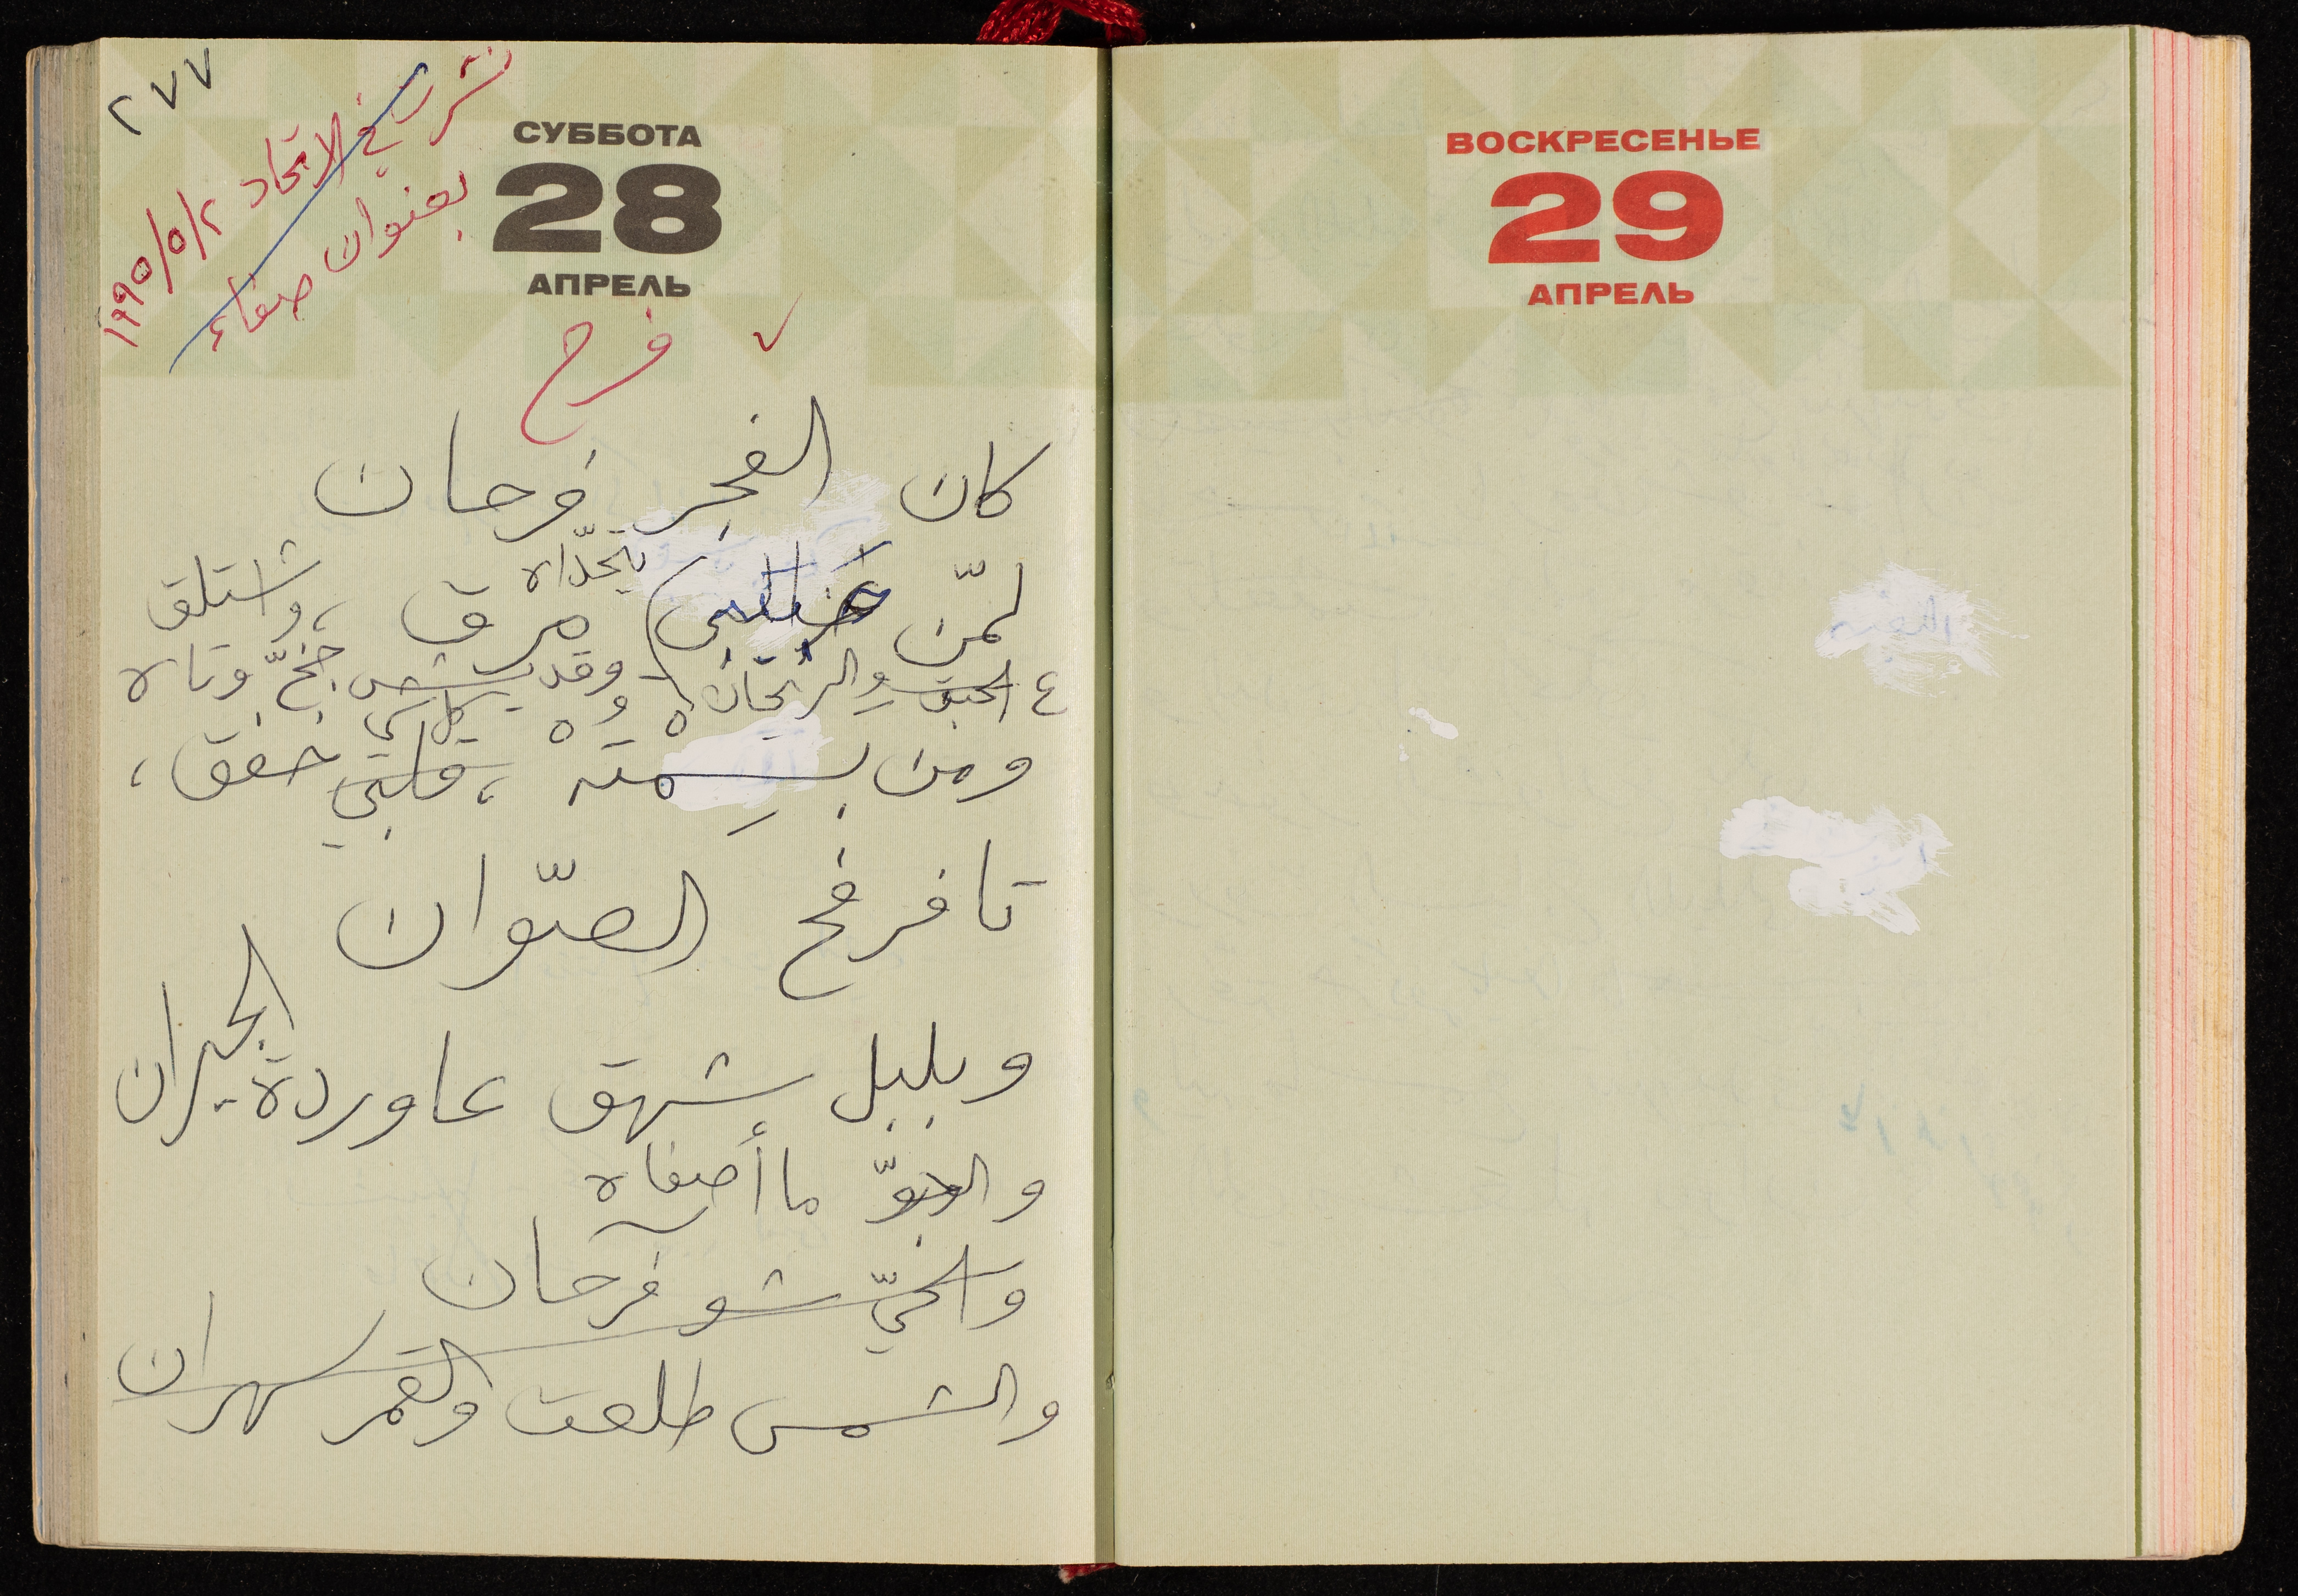 ٢٧٧
نشرت في الاتحاد ١٩٩٥/٥/٢
بعنوان صفاء
СУББОТА
28
АПРЕЛЬ
فرح
كان الفجر فرحان
يتحدّاه
لمّن مرق، واستلقى
ع الحبق والريحان وقد جخّ وتاه
ومن بسمته، قلبي خفق،
تا فرفح الصّوان
وبلبل شهق عا وردة الجيران
والجوّ ما أصفاه
والحيّ شو فرحان
والشمس طلعت والقمر سهران
ВОСКРЕСЕНЬЕ
29
АПРЕЛЬ